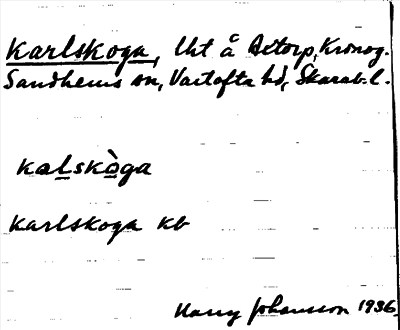 Karlskoga, Lht å Aetorp, Kronog.
Sandhems sn, Vartofta hd, Skarab. l.
kalskòga
Karlskoga kb
Harry Johansson 1936